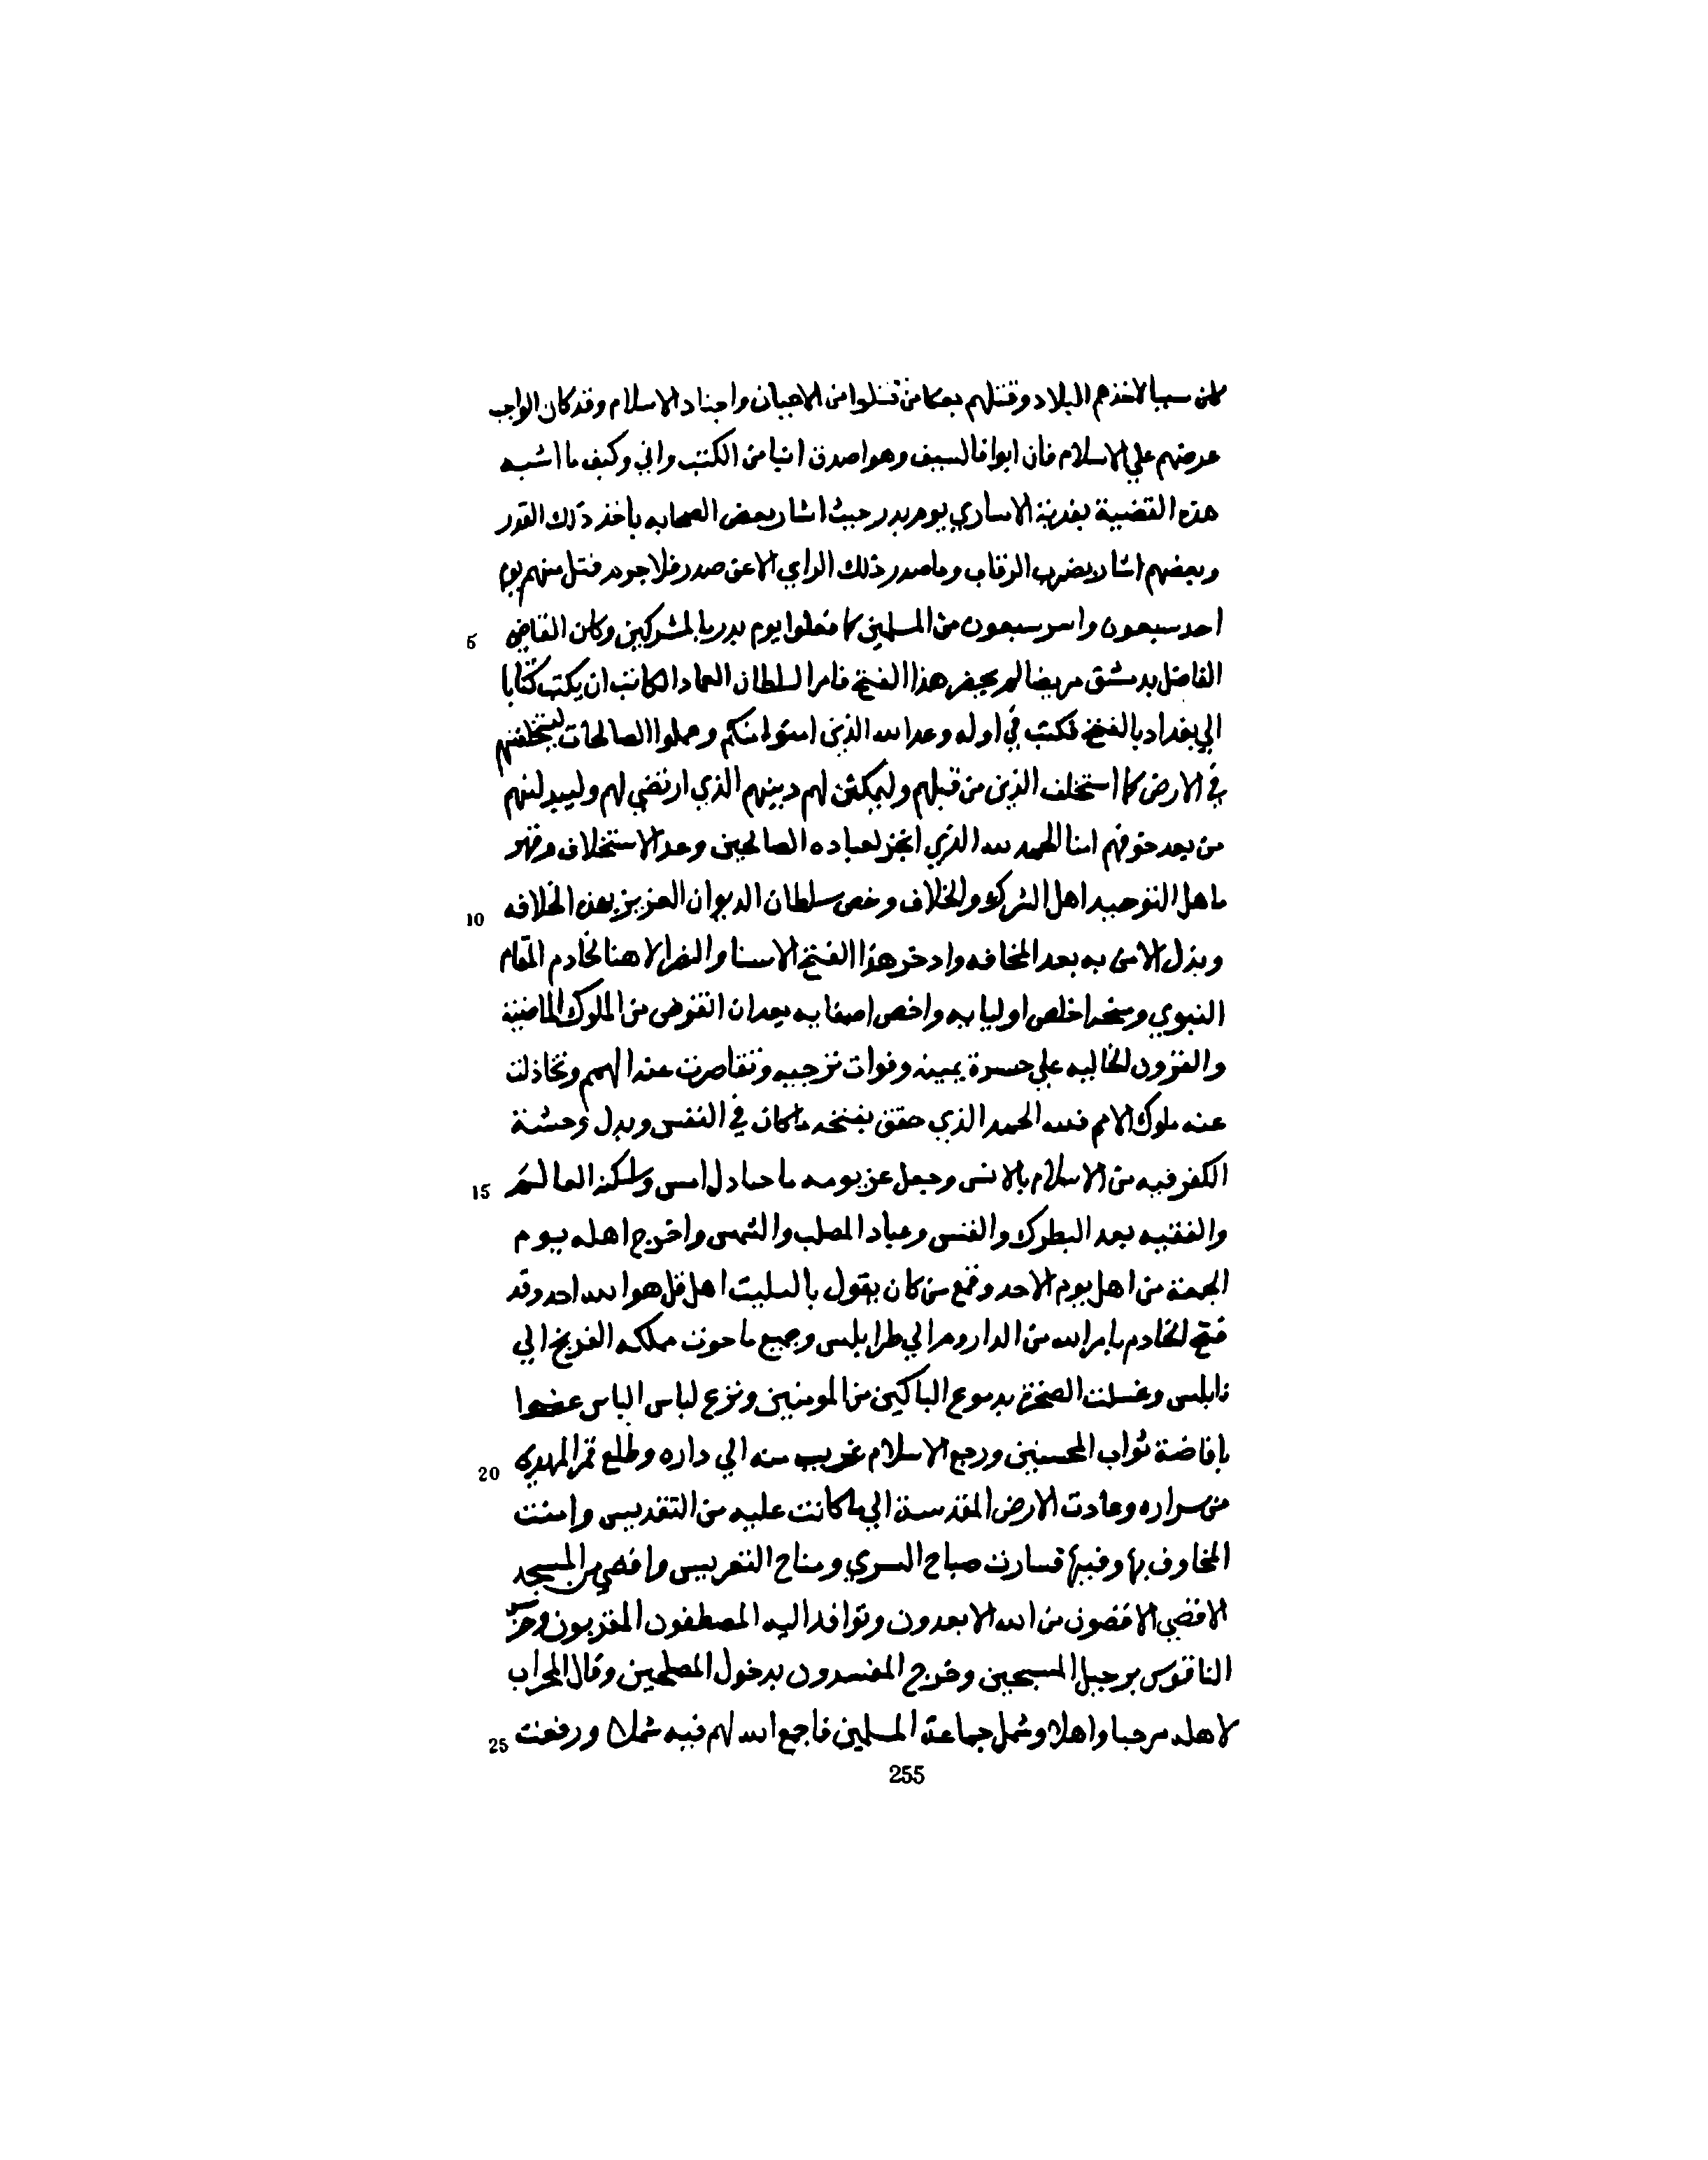 كان سببا لاخذهم البلاد وقتلهم بعكا من قتلوا من الاعيان واجناد الاسلام وقد كان الواجب
عرضهم علي الاسلام فان ابوا فالسيف وهو اصدق انبا من الكتب واني وكيف ما اشبه
هذه القضية بفدية الاساري يوم بدر حيث اشار بعض الصحابه باخذ ذلك القور
وبعضهم اشار بضرب الرقاب وما صدر ذلك الراي الا عن صدر فلا جرم قتل منهم يوم
5 احد سبعون واسر سبعون من المسلمين كما فعلوا يوم بدر بالمشركين وكان القاضي
الفاضل بدمشق مريضا لم يحضر هذا الفتح فامر السلطان العماد الكاتب ان يكتب كتابا
الي بغداد بالفتح فكتب في اوله وعد الله الذين امنوا منكم وعملوا الصالحات ليستخلفنهم
في الارض كما استخلف الذين من قبلهم وليمكنن لهم دينهم الذي ارتضي لهم وليبدلنهم
من بعد خوفهم امنا الحمد لله الذي انجز لعباده الصالحين وعد الاستخلاف وقهر
10 باهل التوحيد اهل الشرك والخلاف وخص سلطان الديوان العزيز بهذه الخلافه
وبدل الامن به بعد المخافه وادخر هذا الفتح الاسنا والنصر الاهنا لخادم المقام
النبوي ومنحه اخلص اوليايه واخص اصفايه بعد ان انقرض من الملوك الماضية
والقرون الخاليه علي حسرة يمينه وفوات ترجيه وتقاصرت عنه الهمم وتخاذلت
عنه ملوك الامم فلله الحمد الذي حقق بفتحه ما كان في النفس وبدل وحشة
15 الكفر فيه من الاسلام بالانس وجعل عز يومه ما حيا دل امس واسكنه العالم
والفقيه بعد البطرك والقس وعباد الصلب والشمس واخرج اهله يوم
الجمعة من اهل يوم الاحد وقمع من كان يقول بالسليت اهل قل هو الله احد وقد
فتح الخادم بامر الله من الداروم الي طرابلس وجميع ما حوت مملكه الفرنج الي
نابلس وغسلت الصخرة بدموع الباكين من المومنين ونزع لباس الباس عنها
20 بافاضة ثواب المحسنين ورجع الاسلام غريب منه الي داره وطلع قمر المهدي
من سراره وعادت الارض المقدسة الي ما كانت عليه من التقديس وامنت
المخاوف بها وفيها فسارت صباح السري ومناح التعريس واقصي من المسجد
الاقصي الاقصون من الله الابعدون وتوافد اليه المصطفون المقربون وخرس
الناقوس برجيل المسبحين وخرج المفسدون بدخول المصلحين وقال المحراب
25 لاهله مرحبا واهلا وشمل جماعة المسلمين فاجمع الله لهم فيه شملا ورفعت
255